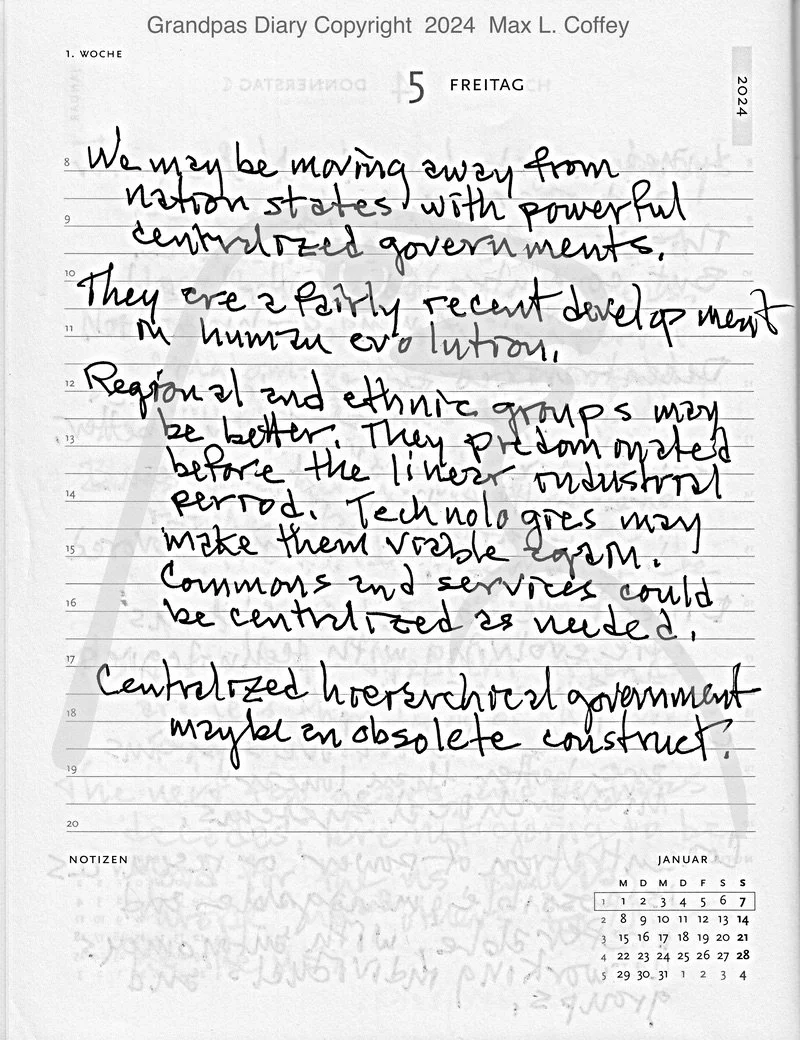 Grandpas Diary Copyright 2024 Max L. Coffey
1. WOCHE
5 FREITAG
2024
8 We may be moving away from
nation states with powerful
9 centralized governments.
10 They are a fairly recent development
11 in human evolution.
12 Regional and ethnic groups may
be better. They predominated
13 before the linear industrial
14 period. Technologies may
15 make them viable again.
Commons and services could
16 be centralized as needed.
17 Centralized hierarchical government
18 maybe an obsolete construct?
19
20
NOTIZEN
JANUAR
M D M D F S S
1 1 2 3 4 5 6 7
2 8 9 10 11 12 13 14
3 15 16 17 18 19 20 21
4 22 23 24 25 26 27 28
5 29 30 31 1 2 3 4